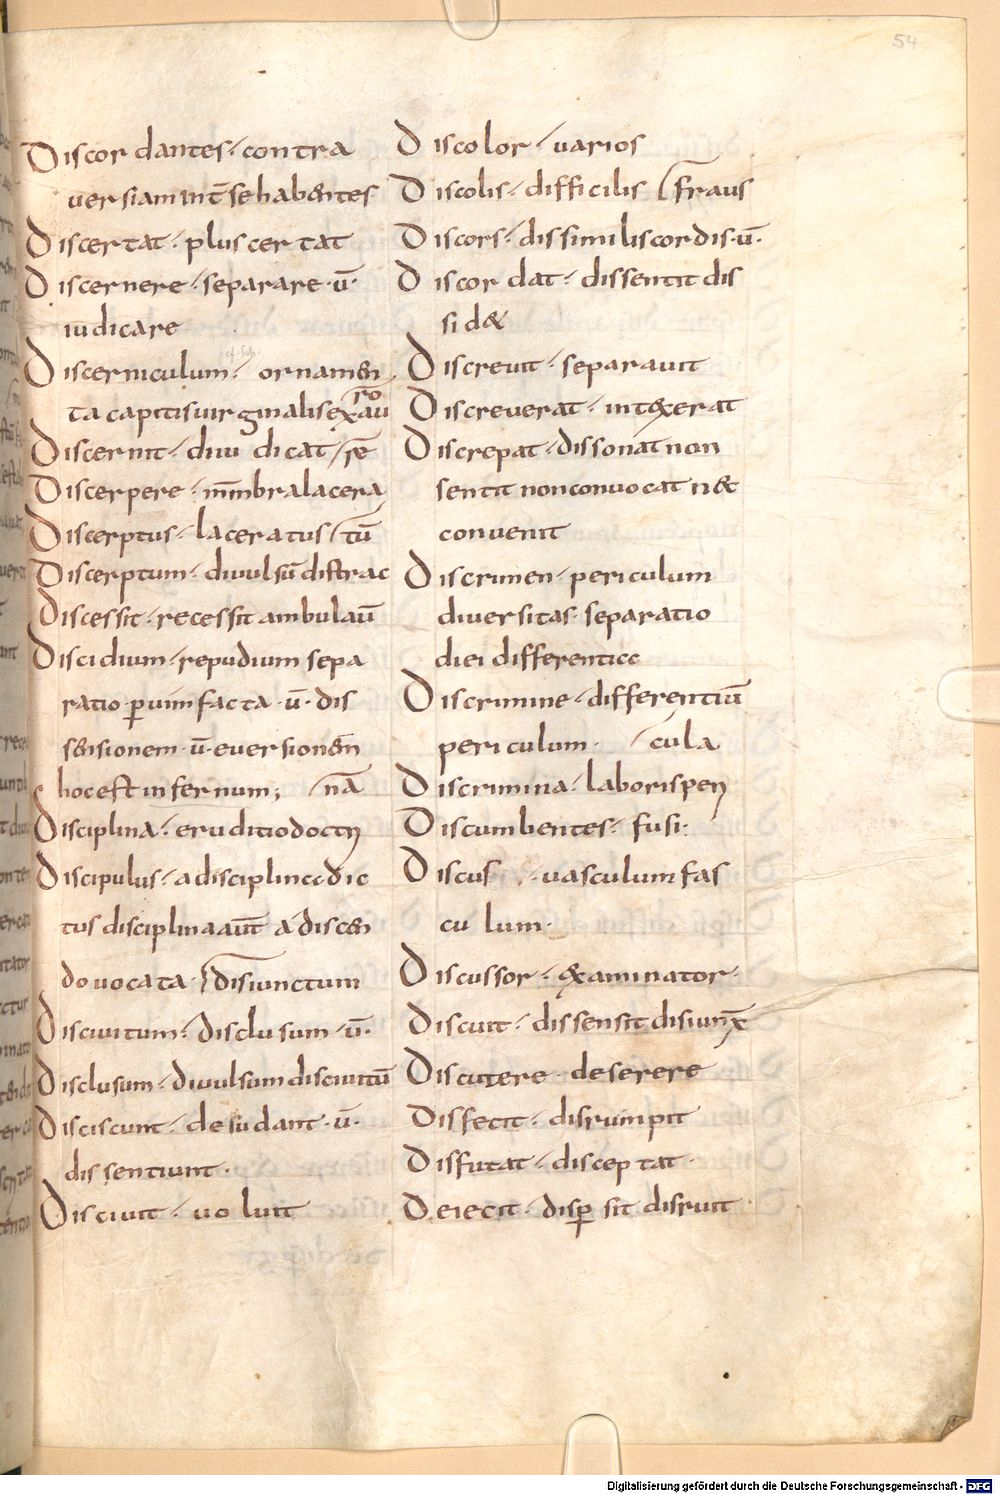 54
Discordantes· contra
uersiam int̄ se hab&ntes
Discertat· plus certat
Discernere· separare· ū·
iudicare
Discerniculum· ornamen
ta capitis uirginalis ex au
ro
Discernit· diiudicat
Discerpere· mēmbra lacera
re
Discerptus· laceratus
Discerptum· diuulsū distrac
tū
Discessit· recessit ambulau̅
Discidium· repudium sepa
ratio· ꝑ uim facta· ū· dis
sensionem· ū· euersionem
hoc est infernum;
Disciplina· eruditio doctri
na
Discipulus· a disciplina dic
tus disciplina aut̄ a discen
do uocata
Disciuitum· disclusum· ū·
disiunctum
Disclusum· diuulsum disciuitū
Disciscunt· desudant· ū·
dissentiunt·
Disciuit· uoluit
Discolor· uarios
Discolis· difficilis fraus
Discors· dissimilis cordis· ū·
Discordat· dissentit dis
sid&
Discreuit· separauit
Discreuerat· intexerat
Discrepat· dissonat non
sentit non conuocat n&
conuenit
Discrimen· periculum
diuersitas· separatio
diei differentiae
Discrimine· differentiū
periculum·
Discrimina· laboris peri
cula
Discumbentes· fusi·
Discus· uasculum fas
culum·
Discussor· examinator·
Discuit· dissensit disiunx̄
Discutere· deserere
Disfecit· disrumpit
Disfutat· disceptat·
Deiecit· disꝑsit disruit
Digitalisierung gefördert durch die Deutsche Forschungsgemeinschaft - DFG